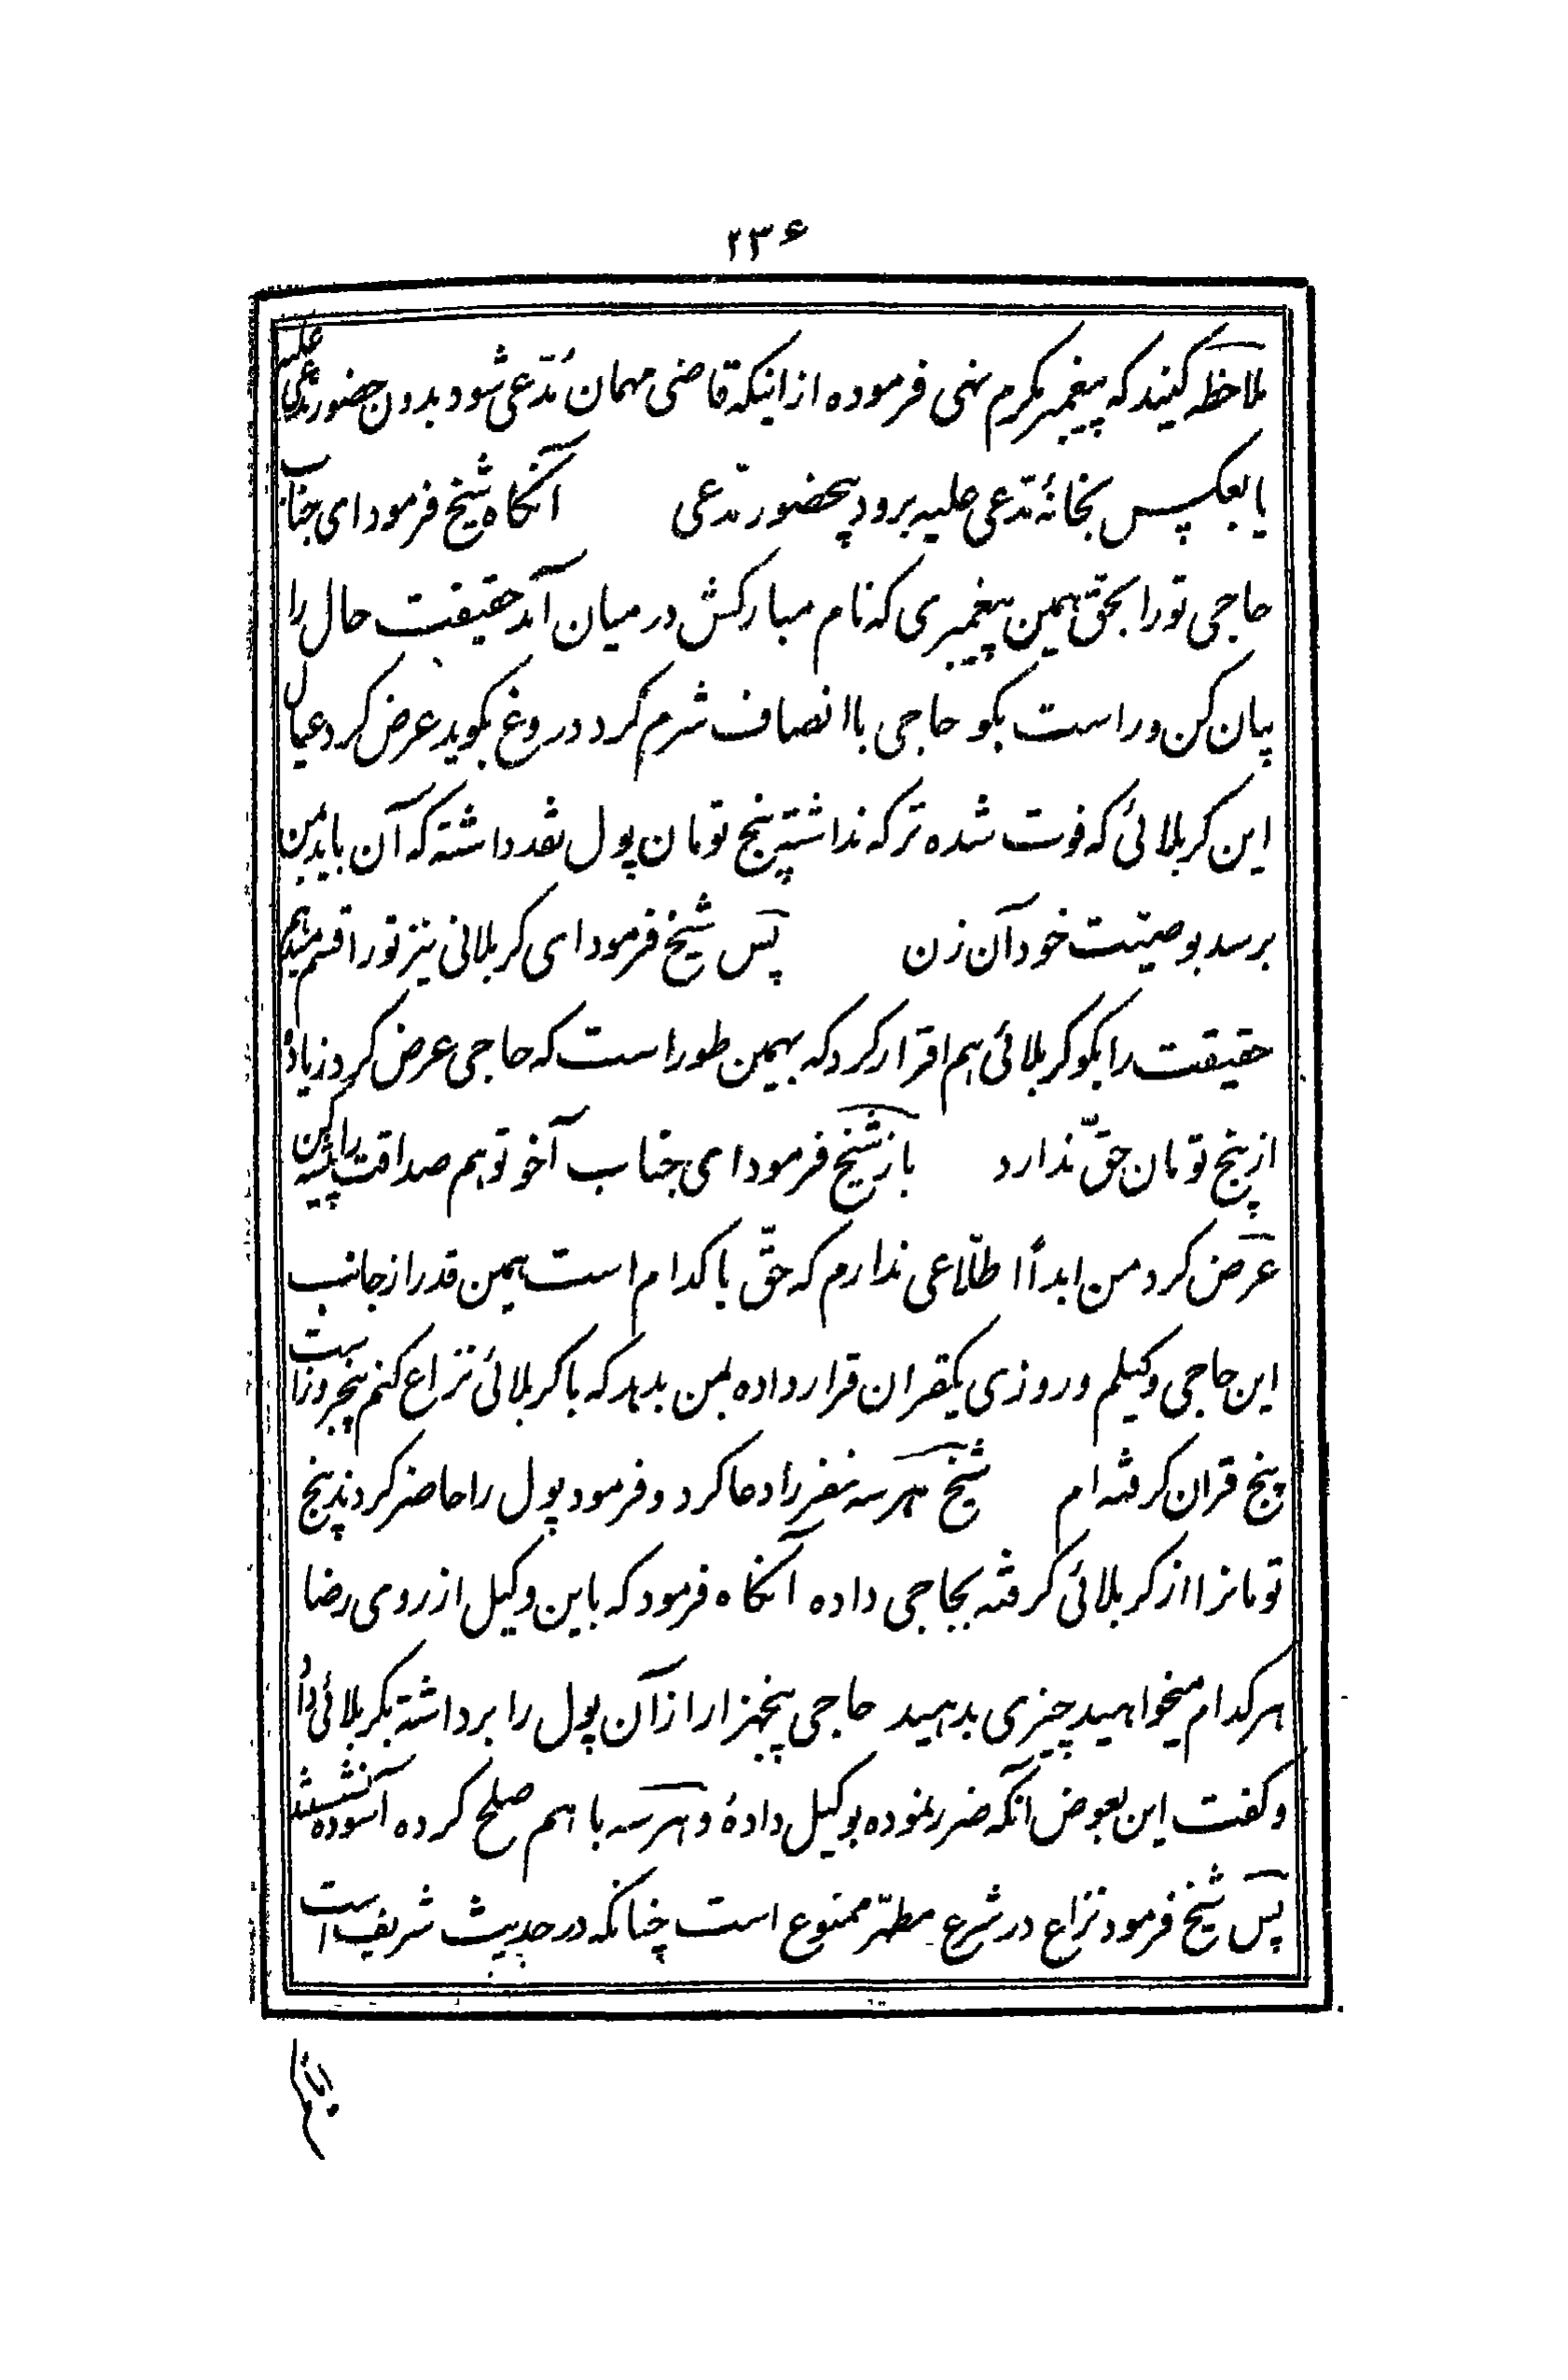 ۲۳۶
ملاحظه کنید که پیغمبر مکرم نهی فرموده از اینکه قاضی مهمان مُدّعی شود بدون حضور مدعی علیه
یا بعکس بخانهٔ مدّعی علیه برود بیحضور مدّعی آنگاه شیخ فرمود ای جناب
حاجی تو را بحقّ همین پیغمبری که نام مبارکش در میان آمد حقیقت حال را
بیان کن و راست بگو حاجی با انصاف شرم کرد دروغ بگوید عرض کرد عیال
این کربلائی که فوت شده ترکه نداشته پنج تومان پول نقد داشته که آن باید بمن
برسد بوصیّت خود آن زن پس شیخ فرمود ای کربلائی نیز تو را قسم میدهم
حقیقت را بگو کربلائی هم اقرار کرد که بهمین طور است که حاجی عرض کرد زیاده
از پنج تومان حقّ ندارد باز شیخ فرمود ای جناب آخو تو هم صداقت را پیشه کن
عرض کرد من ابداً اطلّاعی ندارم که حقّ با کدام است همین قدر از جانب
این حاجی وکیلم و روزی یکقران قرار داده بمن بدهد که با کربلائی نزاع کنم پنجروز است
پنج قران گرفته ام شیخ هر سه نفر را دعا کرد و فرمود پول را حاضر کردند پنج
تومانرا از کربلائی گرفته بحاجی داده آنگاه فرمود که باین وکیل از روی رضا
هر کدام میخواهید چیزی بدهید حاجی پنجهزار از آن پول را برداشته بکربلائی داد
و گفت این بعوض آنکه ضرر نموده بوکیل دادهٔ و هر سه با هم صلح کرده آسوده نشستند
پس شیخ فرمود نزاع در شرع مطهّر ممنوع است چنانکه در حدیث شریف است